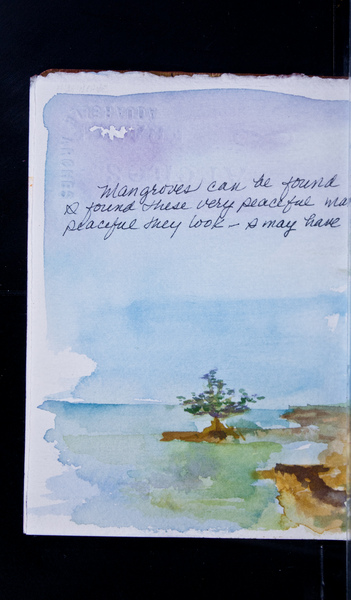 Mangroves can be found
I found these very peaceful
peaceful they look – I may have